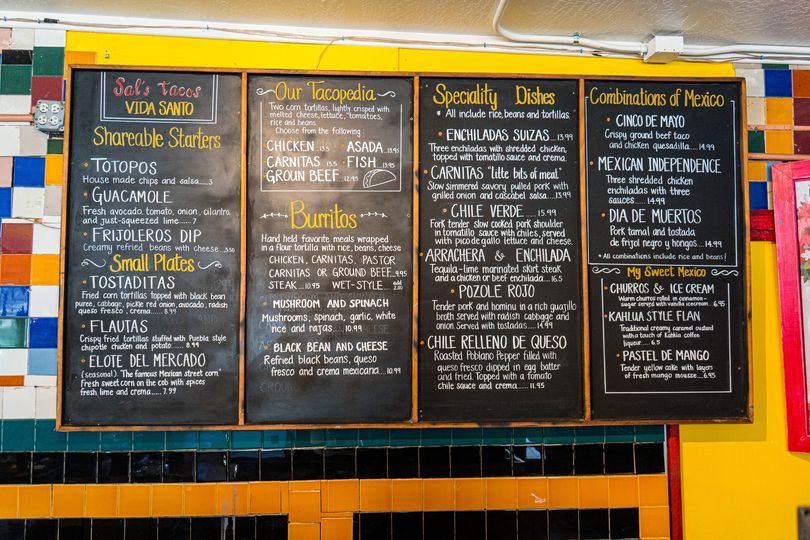 Sal's Tacos
VIDA SANTO
Shareable Starters
TOTOPOS
House made chips and salsa.....3
GUACAMOLE
Fresh avocado, tomato, onion, cilantro
and just-squeezed lime....... 7
FRIJOLEROS DIP
Creamy refried beans with cheese...3.50
Small Plates
TOSTADITAS
Fried corn tortillas topped with black bean
puree, cabbage, pickle red onion, avocado, radish
queso fresco, crema......8.99
FLAUTAS
Crispy fried tortillas stuffed with Puebla style
chipotle chicken and potato...... 8.99
ELOTE DEL MERCADO
(seasonal). The famous Mexican street corn.
Fresh sweet corn on the cob with spices
fresh lime and crema.....7.99
Our Tacopedia
Two corn tortillas, lightly crisped with
melted cheese, lettuce, tomatoes,
rice and beans.
Choose from the following:
CHICKEN ASADA 13.95
CARNITAS 13.5 FISH 13.95
GROUN BEEF 12.95
Burritos
Hand held favorite meals wrapped
in a flour tortilla with rice, beans, cheese
CHICKEN, CARNITAS, PASTOR
CARNITAS OR GROUND BEEF 9.95
STEAK.....10.95 WET-STYLE... add 2.00
MUSHROOM AND SPINACH
Mushrooms, spinach, garlic, white
rice and rajas.....10.99
BLACK BEAN AND CHEESE
Refried black beans, queso
fresco and crema mexicana....10.99
Speciality Dishes
* All include rice, beans and tortillas.
ENCHILADAS SUIZAS...13.99
Three enchiladas with shredded chicken,
topped with tomatillo sauce and crema.
CARNITAS "little bits of meat"
Slow simmered savory pulled pork with
grilled onion and cascabel salsa....13.99
CHILE VERDE.....15.99
Fork tender slow cooked pork shoulder
in tomatillo sauce with chiles, served
with pico de gallo lettuce and cheese.
ARRACHERA & ENCHILADA
Tequila-lime marinated skirt steak
and a chicken or beef enchilada.....16.5
POZOLE ROJO
Tender pork and hominy in a rich guajillo
broth served with radish cabbage and
onion. Served with tostadas.....14.99
CHILE RELLENO DE QUESO
Roasted Poblano Pepper filled with
queso fresco dipped in egg batter
and fried. Topped with a tomato
chile sauce and crema.....11.95
Combinations of Mexico
CINCO DE MAYO
Crispy ground beef taco
and chicken quesadilla.....14.99
MEXICAN INDEPENDENCE
Three shredded chicken
enchiladas with three
sauces.....14.99
DIA DE MUERTOS
Pork tamal and tostada
de frijol negro y hongos...14.99
* All combinations include rice and beans!
My Sweet Mexico
CHURROS & ICE CREAM
Warm churros rolled in cinnamon-
sugar served with vanilla icecream...6.95
KAHLUA STYLE FLAN
Traditional creamy caramel custard
with a touch of Kahlua coffee
liqueur..... 6.5
PASTEL DE MANGO
Tender yellow cake with layers
of fresh mango mousse....6.95